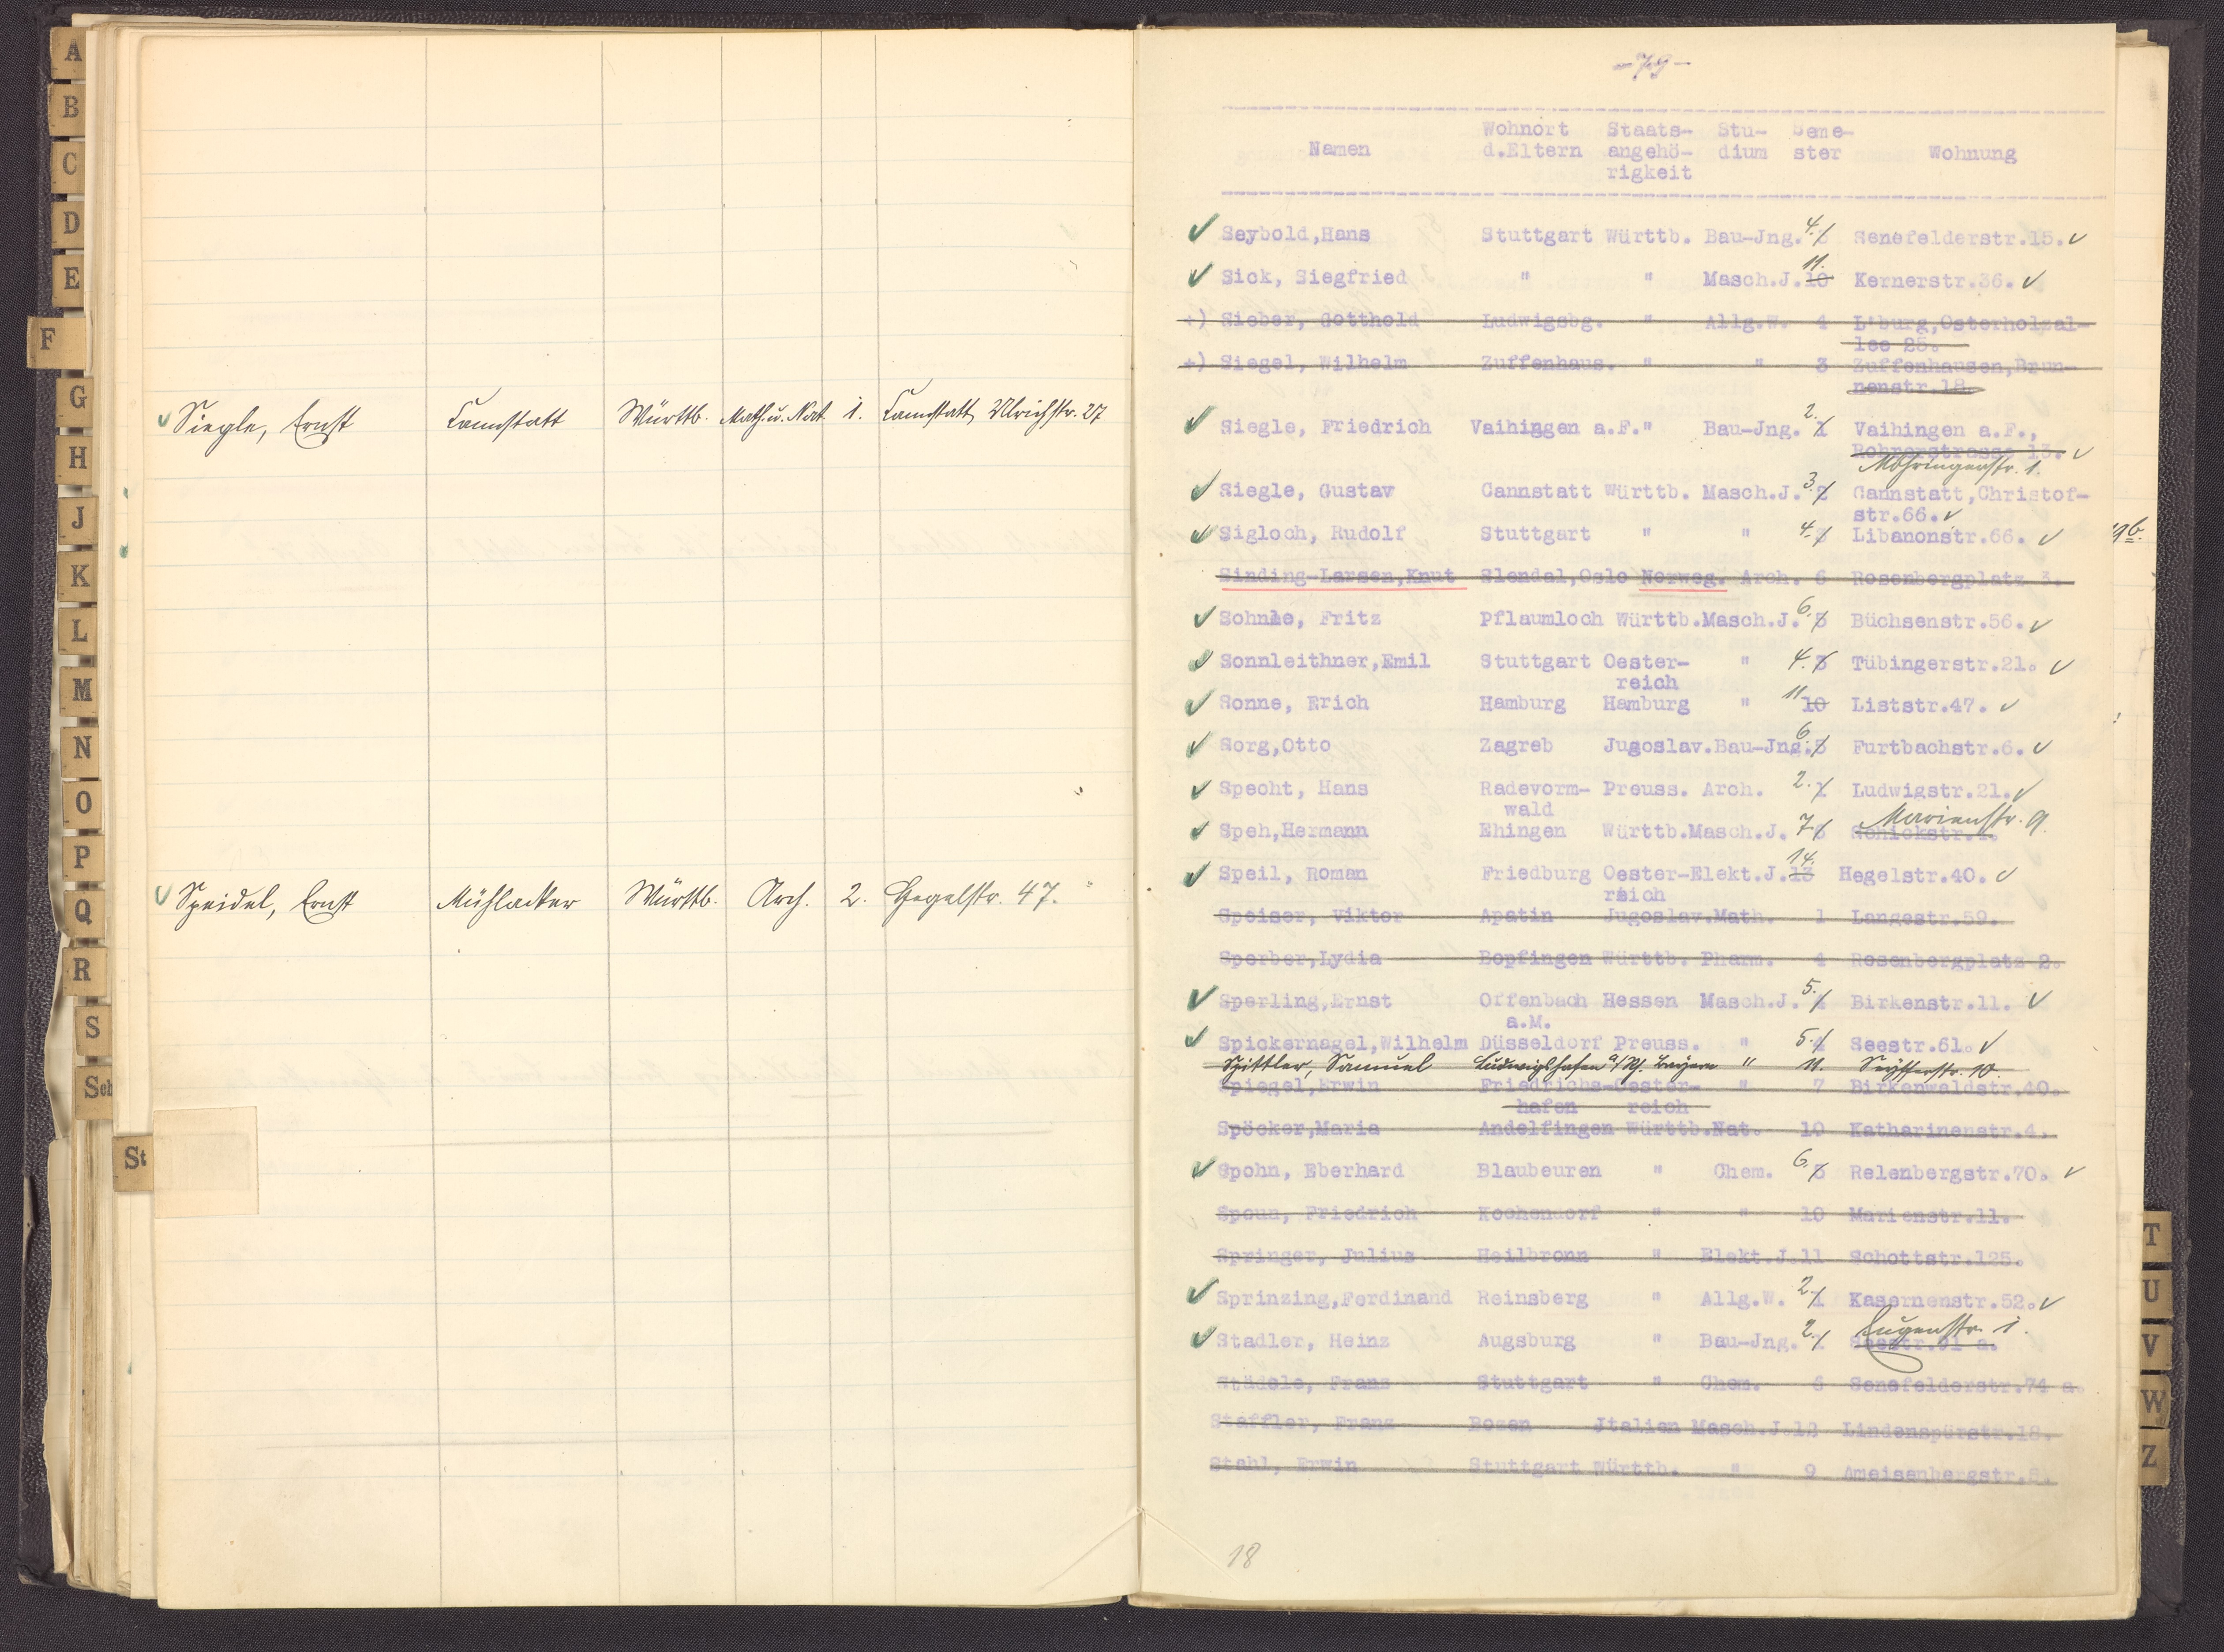 A
B
C
D
E
F
G
H
J
K
L
M
N
O
P
Q
R
S
Sch
St
Siegle, Ernst Cannstatt Württb. Math. u. Nat 1. Cannstatt, Ulrichstr. 27
Speidel, Ernst Mühlacker Württb. Arch. 2. Hegelstr. 47.
-79-
Wohnort Staats- Stu- Seme-
Namen d.Eltern angehö- dium ster Wohnung
rigkeit
Seybold,Hans Stuttgart Württb. Bau-Jng. 4. Senefelderstr.15.
Sick, Siegfried " " Masch.J. 11. 10 Kernerstr.36.
+) Sieber, Gotthold Ludwigsbg. " Allg.W. 4 L'burg,Osterholzal-
lee 25.
+) Siegel, Wilhelm Zuffenhaus. " " 3 Zuffenhausen,Brun-
nenstr.18.
Siegle, Friedrich Vaihingen a.F." Bau-Jng. 2. 1 Vaihingen a.F.,
Rohrerstrasse 13.
Möhringerstr. 1.
Siegle, Gustav Cannstatt Württb. Masch.J. 3. 2 Cannstatt,Christof-
str.66.
Sigloch, Rudolf Stuttgart " " 4. 3 Libanonstr.66.
Sinding-Larsen,Knut Slendal,Oslo Norweg. Arch. 6 Rosenbergplatz 3.
Sohnle, Fritz Pflaumloch Württb.Masch.J. 6. 5 Büchsenstr.56.
Sonnleithner,Emil Stuttgart Oester- " 4. 3 Tübingerstr.21.
reich
Sonne, Erich Hamburg Hamburg " 11 10 Liststr.47.
Sorg,Otto Zagreb Jugoslav.Bau-Jng. 6 5 Furtbachstr.6.
Specht, Hans Radevorm- Preuss. Arch. 2. 1 Ludwigstr.21.
wald Marienstr. 9.
Speh,Hermann Ehingen Württb.Masch.J. 7. Schickstr.4.
Speil, Roman Friedburg Oester-Elekt.J. 14. 13 Hegelstr.40.
reich
Speiser, Viktor Apatin Jugoslav.Math. 1 Langestr.59.
Sperber,Lydia Bopfingen Württb. Pharm. 4 Rosenbergplatz 2.
Sperling,Ernst Offenbach Hessen Masch.J. 5. 4 Birkenstr.11.
a.M.
Spickernagel,Wilhelm Düsseldorf Preuss. " 5. 4 Seestr.61.
Spittler, Samuel Ludwigshafen a/Rh. Bayern " 11. Seyfferstr. 10.
Spiegel,Erwin Friedrichs-Oester- " 7 Birkenwaldstr.40.
hafen reich
Spöcker,Maria Andelfingen Württb.Nat. 10 Katharinenstr.4.
Spohn, Eberhard Blaubeuren " Chem. 6. 5 Relenbergstr.70.
Spoun, Friedrich Kochendorf " " 10 Marienstr.11.
Springer, Julius Heilbronn " Elekt.J.11 Schottstr.125.
Sprinzing,Ferdinand Reinsberg " Allg.W. 2. 1 Kasernenstr.52.
Eugenstr. 1.
Stadler, Heinz Augsburg " Bau-Jng. 2. 1 Seestr.91 a.
Städele, Franz Stuttgart " Chem. 6 Senefelderstr.74 a.
Staffler, Franz Bozen Jtalien Masch.J.12 Lindenspürstr.18.
Stahl, Erwin Stuttgart Württb. " 9 Ameisenbergstr.
18
T
U
V
W
Z